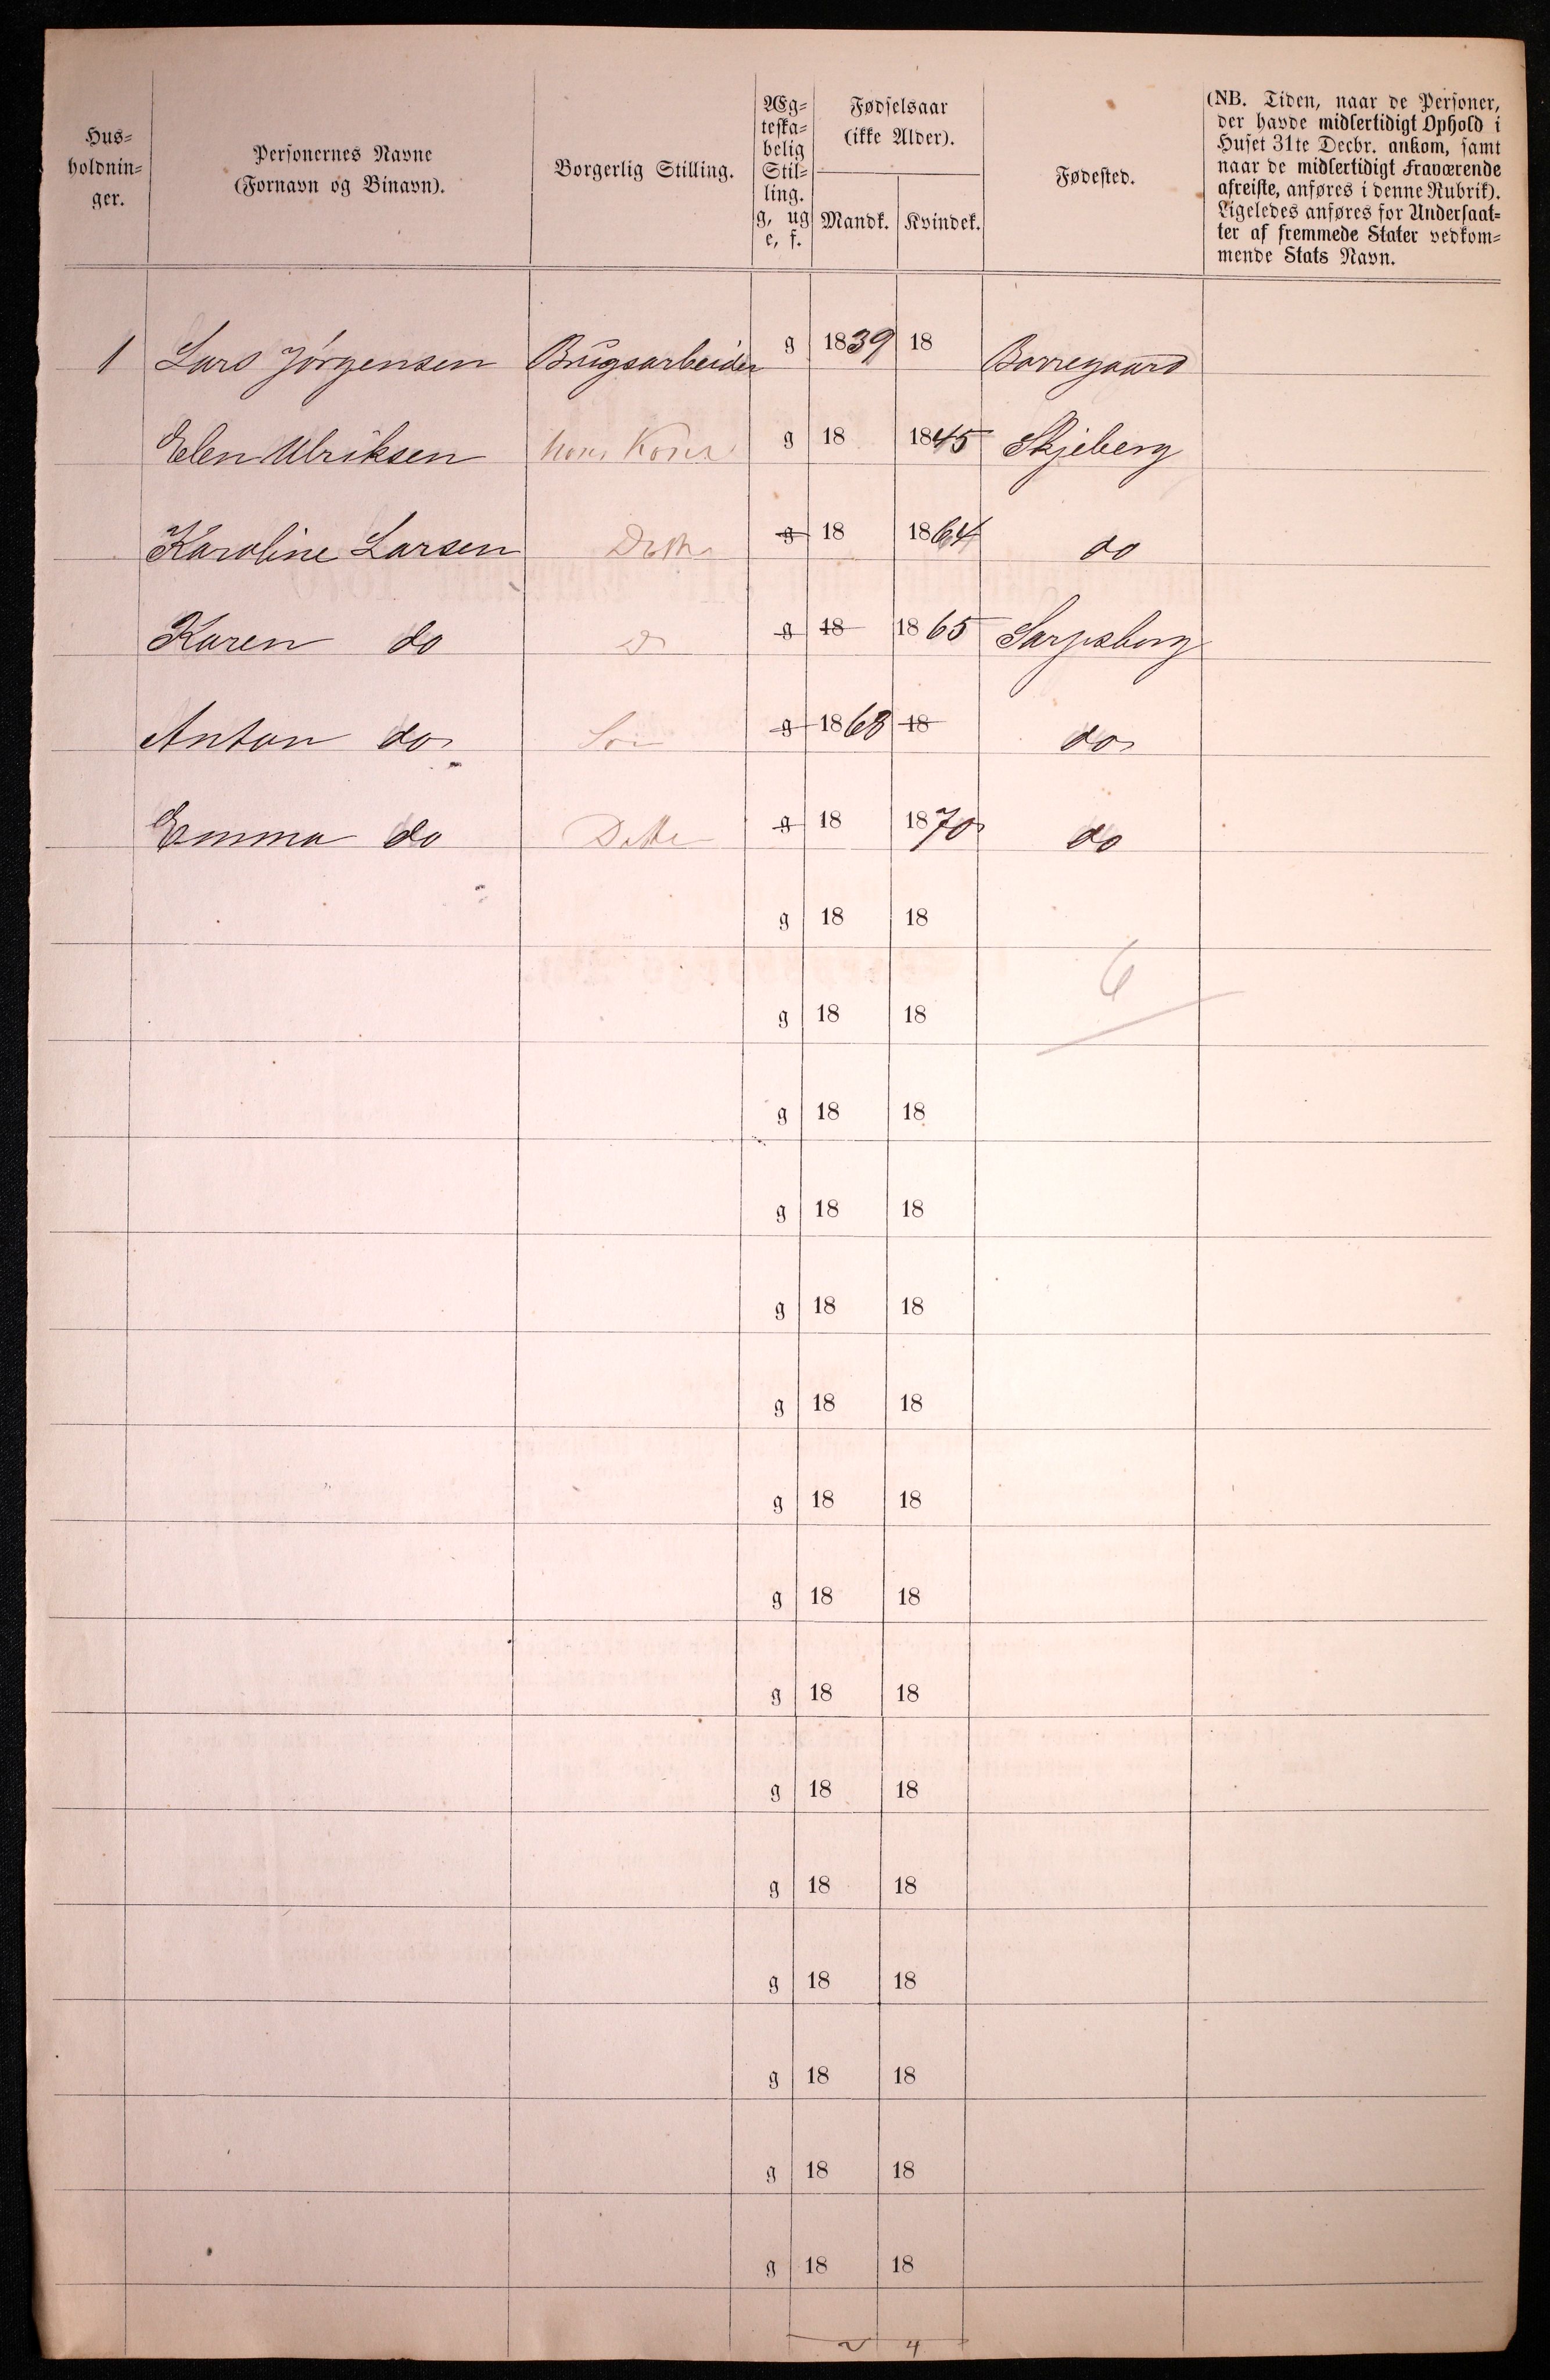 Hus-
holdnin-
ger.
Personernes Navne
(Fornavn og Binavn).
Borgerlig Stilling.
Æg-
teska-
belig
Stil-
ling.
g, ug
e, f.
Fødselsaar
(ikke Alder).
Mandk. Kvindek.
Fødested.
(NB. Tiden, naar de Personer,
der havde midlertidigt Ophold i
Huset 31te Decbr. ankom, samt
naar de midlertidigt fraværende
afreiste, anføres i denne Rubrik).
Ligeledes anføres for Undersaat-
ter af fremmede Stater vedkom-
mende Stats Navn.
1 Lars Jørgensen Brugsarbeider g 1839 18 Borregaard
Elen Ulriksen hans Kone g 18 1845 Skjeberg
Karoline Larsen g 18 1864 do
Karen do d g 18 1865 Sarpsborg
Anton do Søn g 1868 18 do
Emma do Datter g 18 1870 do
g 18 18
6
g 18 18
g 18 18
g 18 18
g 18 18
g 18 18
g 18 18
g 18 18
g 18 18
g 18 18
g 18 18
g 18 18
g 18 18
g 18 18
g 18 18
2 4